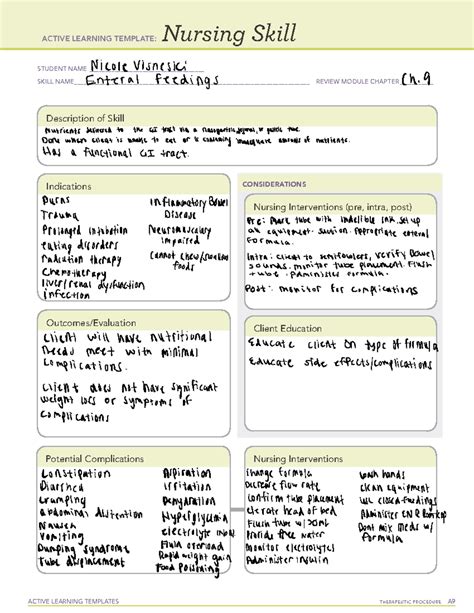 ACTIVE LEARNING TEMPLATE: Nursing Skill
STUDENT NAME Nicole Visneski
SKILL NAME Enteral Feedings REVIEW MODULE CHAPTER Ch. 9
Description of Skill
Nutrients delivered to the GI tract via a nasogastric, jejunal, or gastric tube.
Done when client is unable to eat or is consuming inadequate amounts of nutrients.
Has a functional GI tract.
Indications
Burns
Trauma
Prolonged intubation
eating disorders
Radiation therapy
Chemotherapy
liver/renal dysfunction
infection
Inflammatory Bowel
Disease
Neuromuscular
impaired
Cannot chew/swallow
foods
CONSIDERATIONS
Nursing Interventions (pre, intra, post)
Pre: Mark tube with indelible ink, set up
all equipment. suction. Appropriate enteral
Formula.
Intra: client to semifowlers, verify Bowel
sounds. monitor tube placement. Flush
tube. Administer formula.
Post: monitor for complications
Outcomes/Evaluation
Client will have nutritional
needs meet with minimal
complications.
Client does not have significant
weight loss or symptoms of
complications
Client Education
Educate client on type of formula
Educate side effects/complications
Potential Complications
Constipation
Diarrhea
Cramping
Abdominal distention
Nausea
Vomiting
Dumping syndrome
Tube displacement
Aspiration
Irritation
Dehydration
Hyperglycemia
electrolyte
Fluid overload
Rapid weight gain
Food Poisoning
Nursing Interventions
Change formula
Decrease flow rate
Confirm tube placement
elevate head of bed
Flush tube w/ 30mL
Provide free water
Monitor electrolytes
Administer insulin
wash hands
clean equipment
use closed feedings
Administer @ Room temp
Dont mix meds w/
formula
ACTIVE LEARNING TEMPLATES THERAPEUTIC PROCEDURE A9